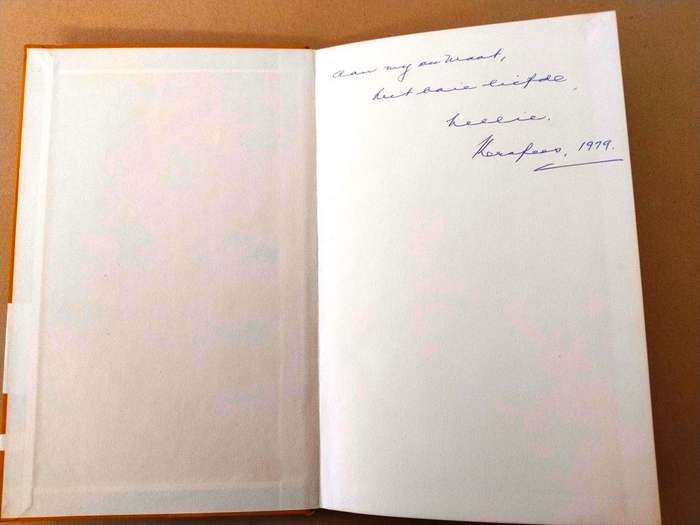 Aan my ou Maat,
Met baie liefde,
Nellie.
Kersfees, 1979.